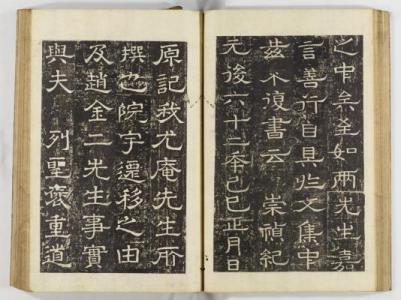 之中矣至如兩先生嘉
言善行自具於文集中
茲不復書云 崇禎紀
元後六十二年己巳正月日
原記我尤庵先生所
撰也院宇遷移之由
及趙金二先生事實
與夫 列聖褒重道